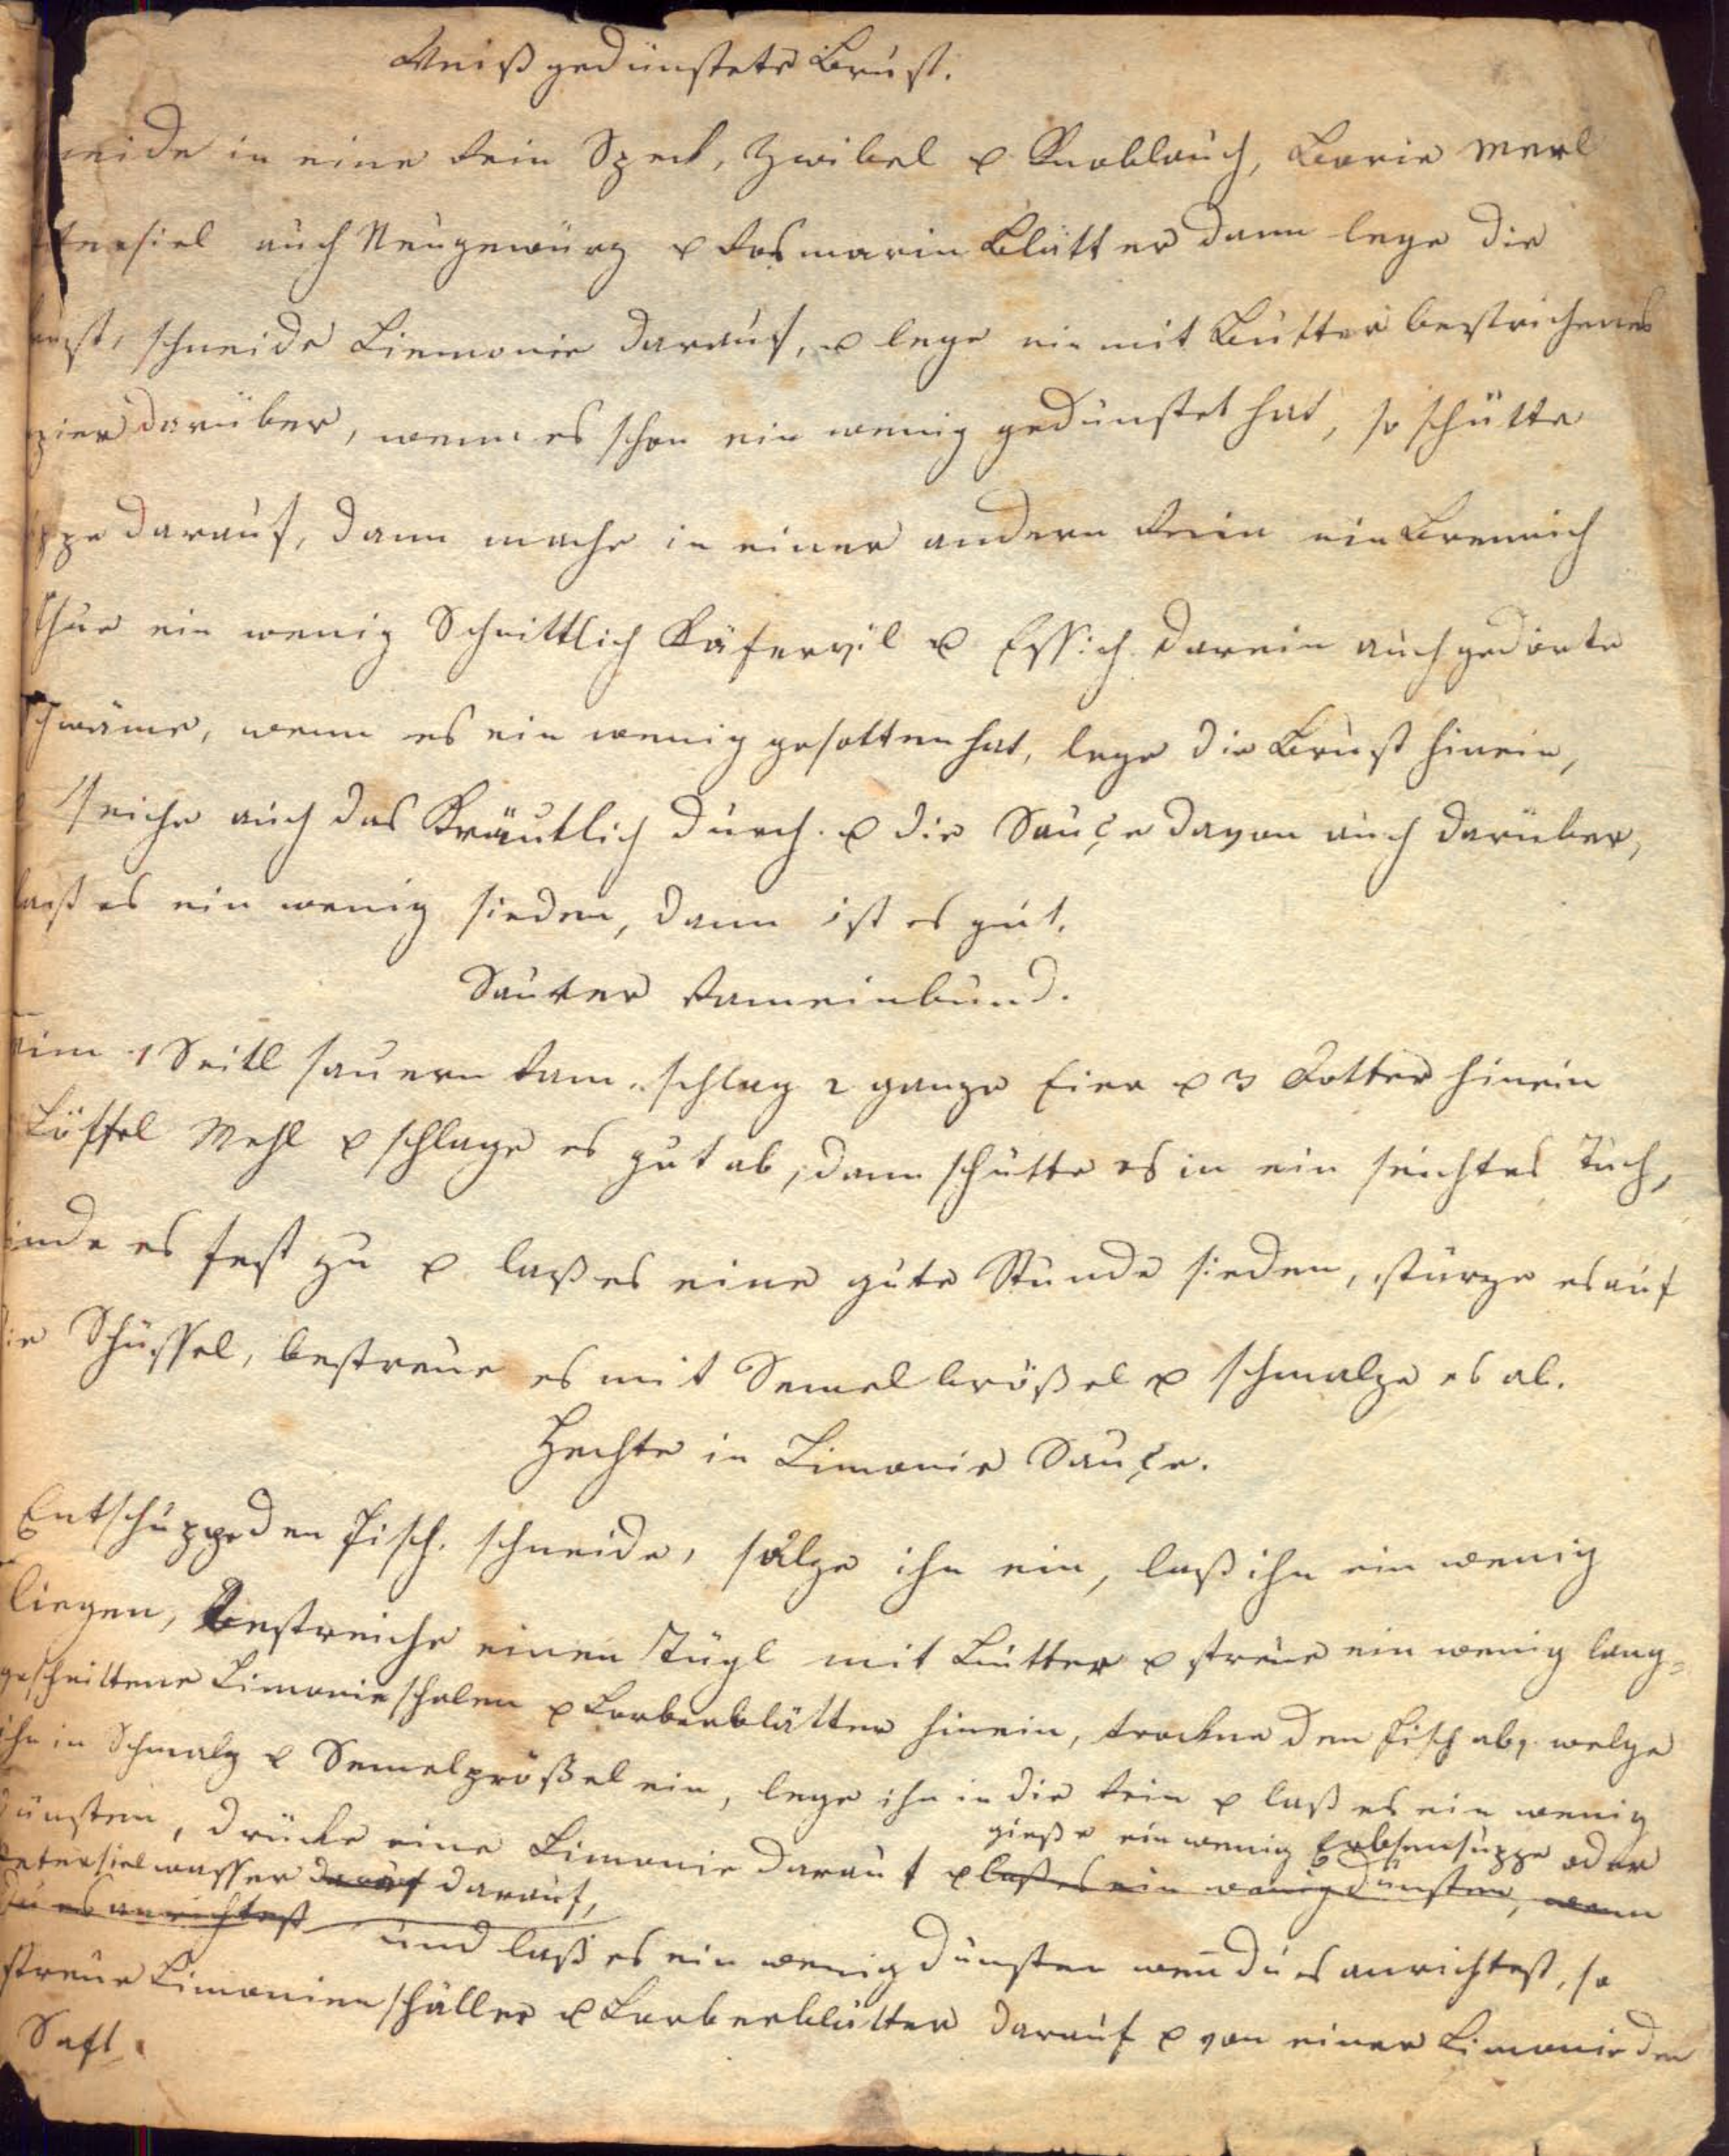 Weiß gedünstete Brust.
neide in eine Rein Speck, Zwibel u Knoblauch, Borie Merl
tersiel auch Neugewürz u Rosmarin Blätter dann lege die
rust, schneide Liemonie darauf, u lege ein mit Butter bestrichenes
pier darüber, wenn es schon ein wenig gedünstet hat, so schütte
ppe darauf, dann mache in einer andern Rein ein Brennich
thue ein wenig Schnittlich Käfervil u Essich darein auch gedörte
Schwäme, wenn es ein wenig gesotten hat, lege die Brust hinein,
seiche auch das Kräutlich durch u die Sauçe davon auch darüber,
laß es ein wenig sieden, dann ist es gut.
Saurer Rameinbund.
nim 1 Seitl sauern Ram. schlag 2 ganze Eier u 3 Dotter hinein
Löffel Mehl u schlage es gut ab, dann schütte es in ein feichtes Tuch,
inde es fest zu u laß es eine gute Stunde sieden, stürze es auf
die Schüssel, bestreue es mit Semelbrößel u schmalze es ab.
Hechte in Limonie Sauçe.
Entschuppe den Fisch, schneide, sälze ihn ein, laß ihn ein wenig
liegen, Bestreiche einen Tügl mit Butter u streue ein wenig lang=
geschnittene Limonieschalen u Lorberblätter hinein, trockne den Fisch ab, welze
ihn in Schmalz u Semelprößel ein, lege ihn in die Rein u laß es ein wenig
dünsten, drücke eine Limonie darauf u laß es ein wenig dünsten, wenn
gieße ein wenig Erbsensuppe oder
Petersielwasser darauf darauf,
du es anrichtest und laß es ein wenig dünsten weñ du es anrichtest, so
streue Limonienschäller u Lorberblätter darauf u von einer Limonie den
Saft.